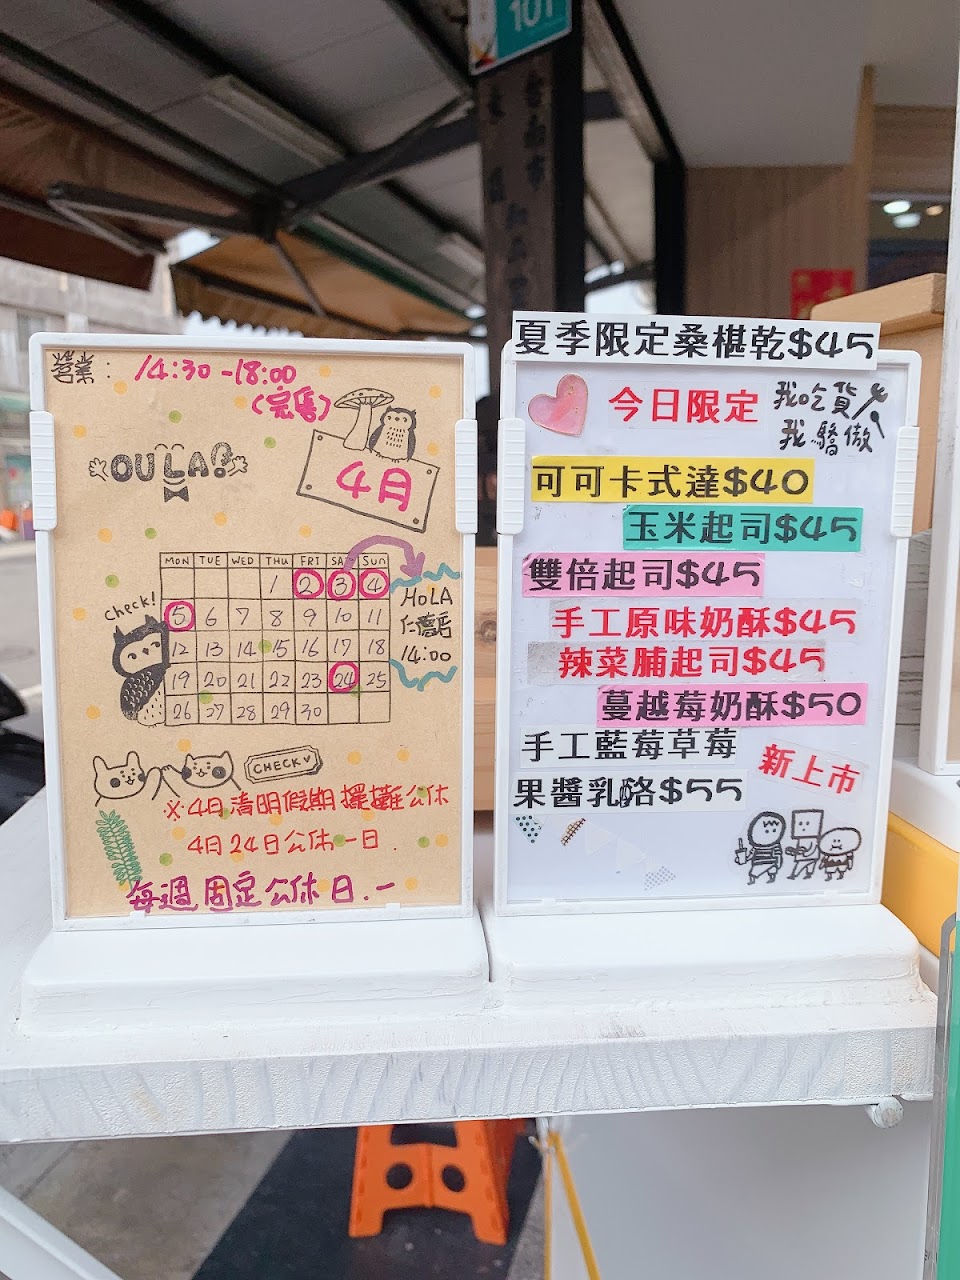 101
營業: 14:30-18:00
(完售)
OULA!
4月
MON TUE WED THU FRI SAT Sun
1 2 3 4
5 6 7 8 9 10 11
12 13 14 15 16 17 18
19 20 21 22 23 24 25
26 27 28 29 30
HOLA
14:00
check!
CHECK
※4月清明假期擺攤公休
4月24日公休一日.
每週固定公休日.一
夏季限定桑椹乾$45
今日限定
我吃貨
我驕傲
可可卡式達$40
玉米起司$45
雙倍起司$45
手工原味奶酥$45
辣菜脯起司$45
蔓越莓奶酥$50
手工藍莓草莓
果醬乳酪$55
新上市